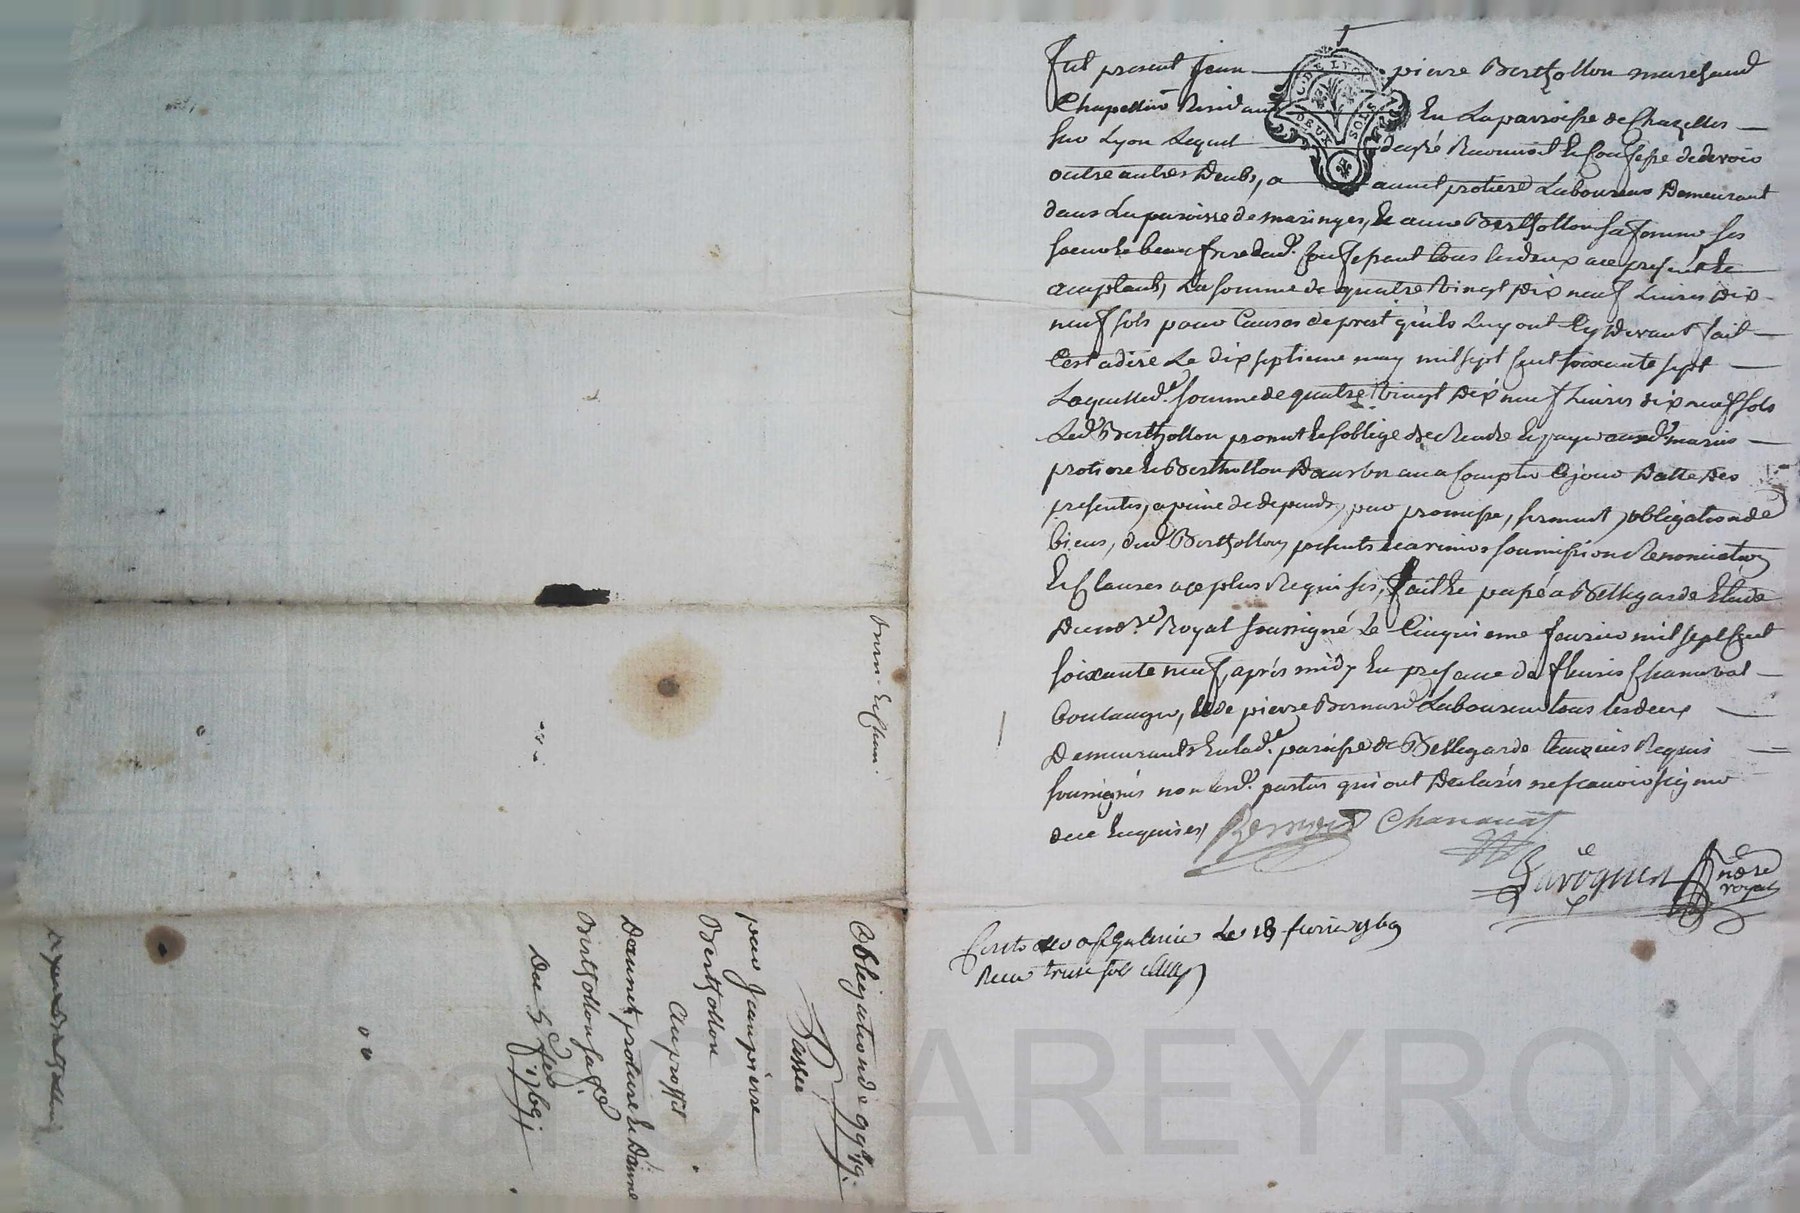 Fut present Jean pierre Berthollon marchand
Chapellier Residant En La parroisse de Chazelles
Sur Lyon Lequel de gré Reconnoit Et Confesse de devoir
outre autres Deubs, a protiere Laboureur Demeurant
dans La paroisse de maringes, Et anne Berthollon sa femme ses
soeur Et beau frere dud. Confessant tous les deux ace presents Et
acceptants, La somme de quatre vingt Dix neuf Livres Dix
neuf sols pour Causes de prest qu'ils Luy ont Cy Devant fait
C'est adire Le dix septieme may mil sept Cent soixante sept
Laquelle d.e somme de quatre vingt Dix neuf Livres dix neuf sols
Led. Berthollon promet Et soblige de Rendre Et payer auxd. mariés
protiere Et Berthollon Dans un an a Compter Ce jour Datte Des
presentes, a peine de depends, par promesse, serment, obligation de
biens, dud. Berthollon, presents Et avenirs soumission Renonciation
Et Clauses ace plus Requises, fait Et passé a Bellegarde Etude
Du no.re Royal soussigné Le Cinquieme fevrier mil sept Cent
soixante neuf, aprés midy En presence de fleuris Chanavat
boulanger, Et de pierre Bernard Laboureur tous les deux
Demeurants En lad.e paroisse de Bellegarde temoins Requis
soussignés non lesd. parties qui ont Declarés ne scavoir signer
de ce Enquises,
Bernard Chanavat
Javogues no.re royal
Le 18 fevrier 1769
Recu treize sols
Obligation de 99# 19 s.
Passée
par Jean pierre
Berthollon
au proffit
protiere Et D'anne
Berthollon sa f.e
Du 5e fer 1769
CHAREYRON